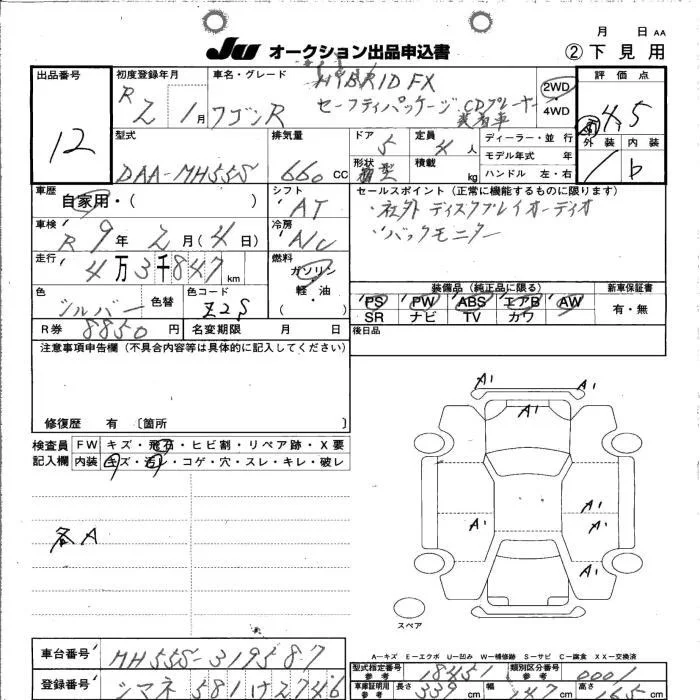 月 日 AA
JU オークション出品申込書
② 下見用
出品番号
12
初度登録年月
R2 1月
車名・グレード
HYBRID FX
ワゴンR セーフティパッケージ CDプレーヤー
装着車
2WD
4WD
評価点
4.5
外装 内装
b
型式
DAA-MH55S
排気量
660 CC
ドア
5
定員
4人
形状
積載
kg
ディーラー・並行
モデル年式 年
ハンドル 左・右
車歴
自家用・( )
シフト
AT
セールスポイント(正常に機能するものに限ります)
・社外 ディスクプレイオーディオ
バックモニター
車検
R 9年 2月(4日)
冷房
A/C
走行
4万3千847km
燃料
ガソリン
軽・油
( )
色
シルバー
色替
色コード
Z2S
装備品(純正品に限る)
PS PW ABS エアB AW
SR ナビ TV カワ
新車保証書
有・無
R券 8850円
名変期限 月 日
後日品
注意事項申告欄(不具合内容等は具体的に記入してください)
修復歴 有 〔箇所 〕
検査員
記入欄
FW キズ・飛石・ヒビ割・リペア跡・X要
内装 キズ・汚レ・コゲ・穴・スレ・キレ・破レ
各A
A1 A1
A1
A1 A1
A1
A1
スペア
A-キズ E-エクボ U-凹み W-補修跡 S-サビ C-腐食 XX-交換済
車台番号
MH55S-319587
登録番号
シマネ 581 け2746
型式指定番号
参考
18451
類別区分番号
参考
0001
車庫証明用
参考
長さ 339cm
幅 147cm
高さ 165cm